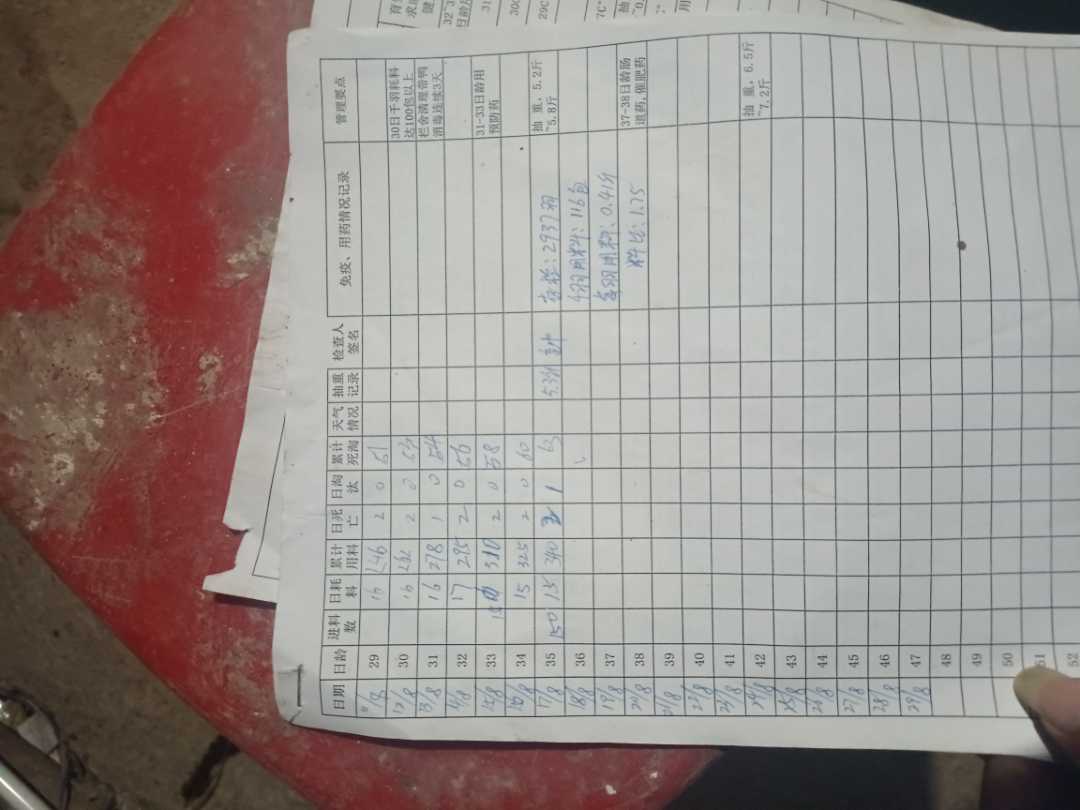 日期 日龄 进料数 日耗料 累计用料 日死亡 日淘汰 累计死淘 天气情况 抽重记录 检查人签名 免疫、用药情况记录 管理要点
11/8 29 16 246 2 0 51
12/8 30 16 262 2 0 53 30日千羽耗料达100包以上
13/8 31 16 278 1 0 54 栏舍清理带鸭消毒连续3天
14/8 32 17 295 2 0 56
15/8 33 15 310 2 0 58 31-33日龄用预防药
16/8 34 15 325 2 0 60
17/8 35 150 15 340 2 1 63 存栏:2937羽 抽 重,5.2斤~5.8斤
18/8 36 料:116包
19/8 37 每羽用料:0.41斤
20/8 38 料比:1.75 37-38日龄肠道药,催肥药
21/8 39
22/8 40
23/8 41
24/8 42 抽 重,6.5斤~7.2斤
25/8 43
26/8 44
27/8 45
28/8 46
29/8 47
48
49
50
51
52